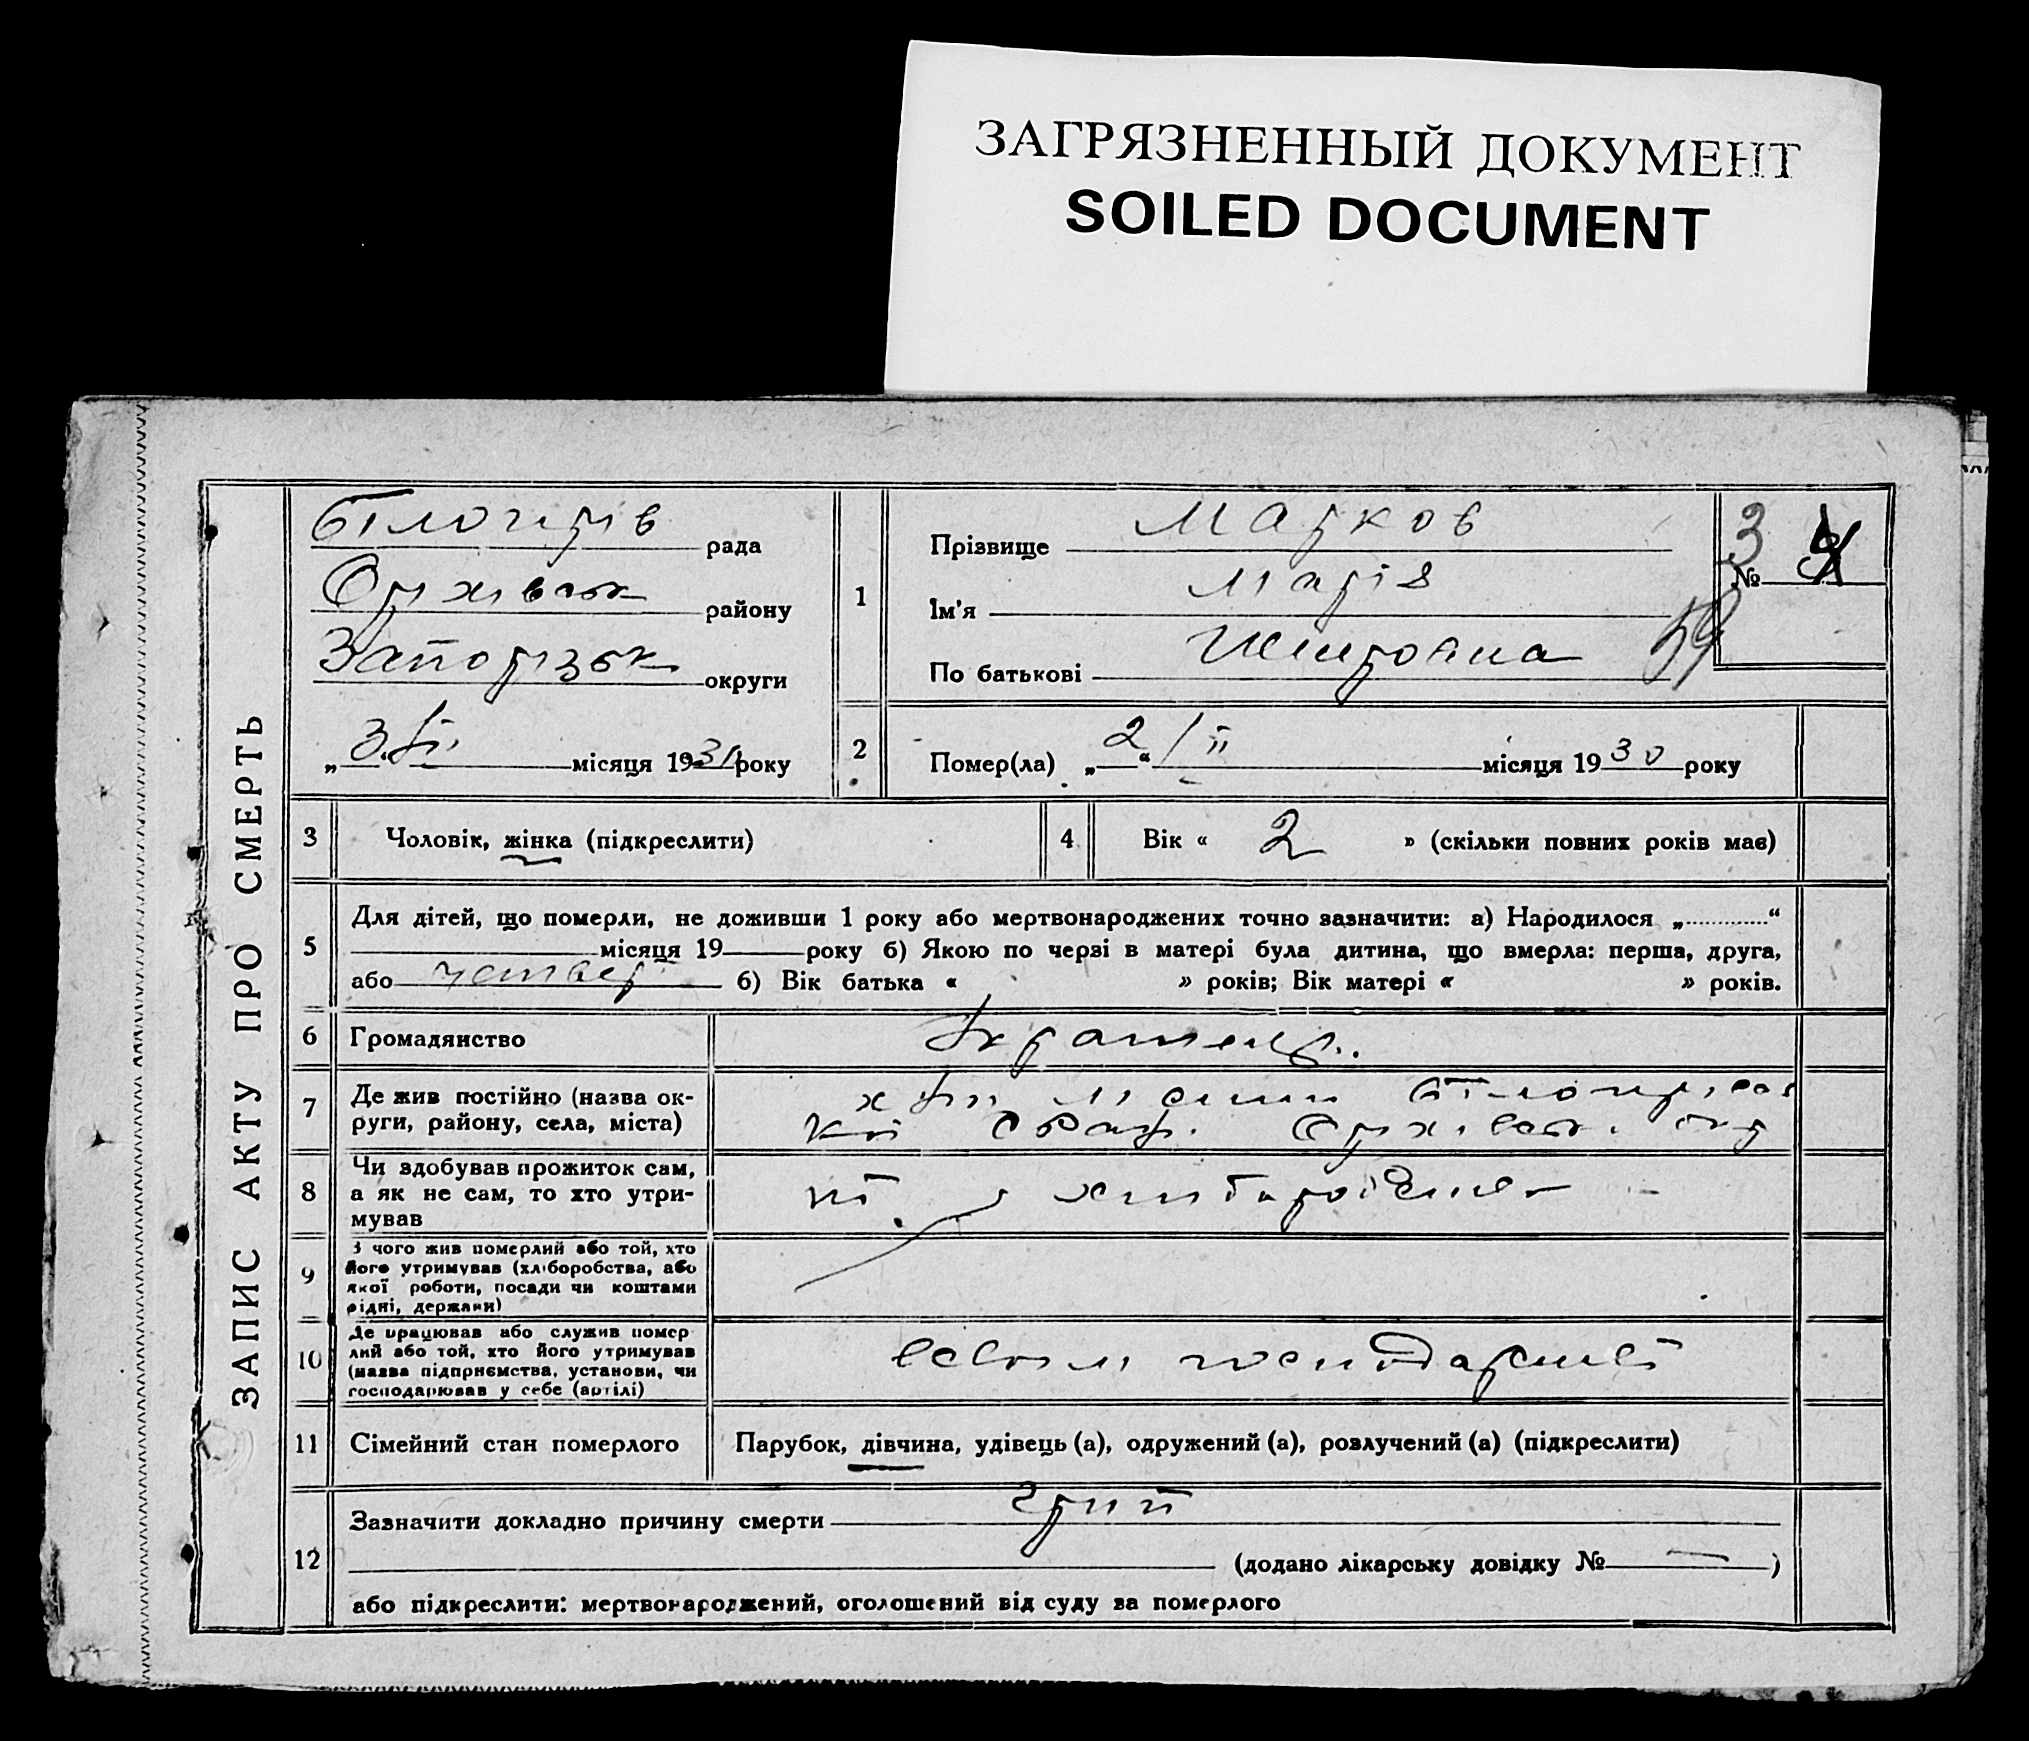 ЗАГРЯЗНЕННЫЙ ДОКУМЕНТ
SOILED DOCUMENT
ЗАПИС АКТУ ПРО СМЕРТЬ
Білогірів рада
Оріхівськ району
Запорізьк округи
„ 3 місяця 1931 року
1
Прізвище Марков
Ім'я Марія
По батькові
3 №
59
2 Помер(ла) „ 2 “ / II місяця 1930 року
3 Чоловік, жінка (підкреслити)
4 Вік « 2 » (скільки повних років має)
5 Для дітей, що померли, не доживши 1 року або мертвонароджених точно зазначити: а) Народилося „ “
місяця 19 року б) Якою по черзі в матері була дитина, що вмерла: перша, друга,
або четвер б) Вік батька « » років; Вік матері « » років.
6 Громадянство
7 Де жив постійно (назва ок-
руги, району, села, міста)
8 Чи здобував прожиток сам,
а як не сам, то хто утри-
мував
9 З чого жив померлий або той, хто
його утримував (хліборобства, або
якої роботи, посади чи коштами
рідні, держави)
10 Де працював або служив помер
лий або той, хто його утримував
(назва підприємства, установи, чи
господарював у себе (артілі)
11 Сімейний стан померлого Парубок, дівчина, удівець (а), одружений (а), розлучений (а) (підкреслити)
12 Зазначити докладно причину смерти грип
(додано лікарську довідку № — )
або підкреслити: мертвонароджений, оголошений від суду за померлого